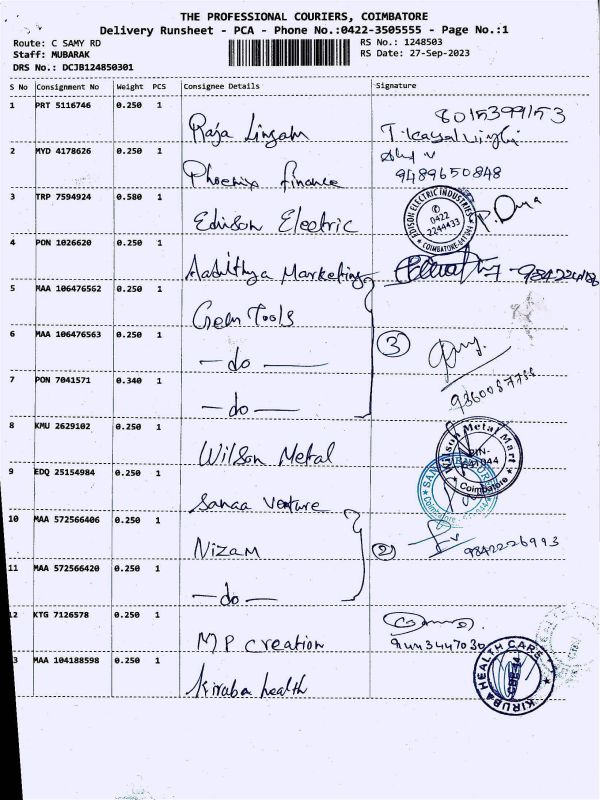 THE PROFESSIONAL COURIERS, COIMBATORE
Delivery Runsheet - PCA - Phone No.:0422-3505555 - Page No.:1
Route: C SAMY RD
RS No.: 1248503
Staff: MUBARAK
RS Date: 27-Sep-2023
DRS No.: DCJB124850301
S No Consignment No Weight PCS Consignee Details Signature
1 PRT 5116746 0.250 1 Raja Lingam 8015399153
2 MYD 4178626 0.250 1 Phoenix finance 9489650848
3 TRP 7594924 0.580 1 Edison Electric
EDISON ELECTRIC INDUSTRIES
✆
0422
2244433
4 PON 1026620 0.250 1 Aadithya Marketing
5 MAA 106476562 0.250 1 Geem Tools
6 MAA 106476563 0.250 1 — do — 3
7 PON 7041571 0.340 1 — do —
8 KMU 2629102 0.250 1 Wilson Metal
Wilson Metal Mart
Coimbatore
9 EDQ 25154984 0.250 1 Sanaa Venture
10 MAA 572566406 0.250 1 Nizam 2 9842226993
11 MAA 572566420 0.250 1 — do —
12 KTG 7126578 0.250 1 MP creation 9443447030
3 MAA 104188598 0.250 1 Kiruba health
KIRUBA HEALTH CARE